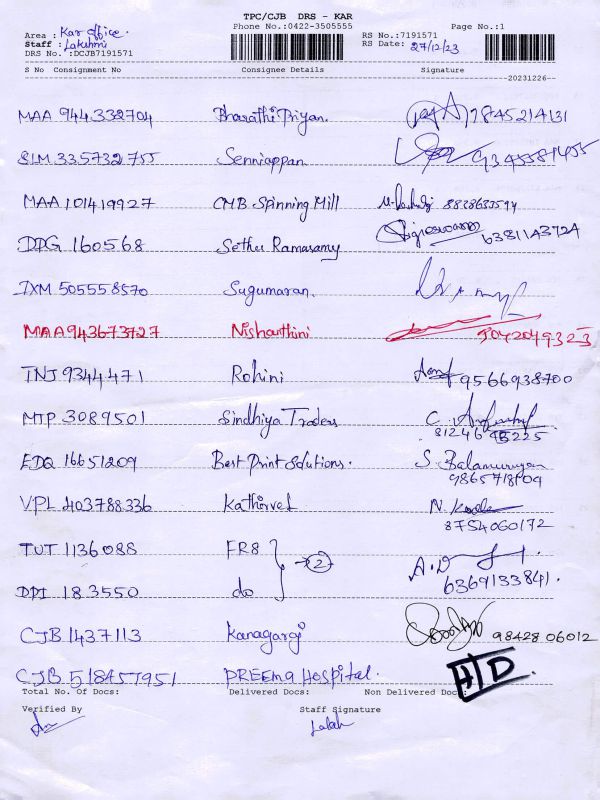 TPC/CJB DRS - KAR
Phone No.:0422-3505555
Page No.:1
Area : Kar office.
Staff : Lakshmi
DRS No.:DCJB7191571
RS No.:7191571
RS Date: 27/12/23
S No Consignment No Consignee Details Signature
20231226--
MAA 944332704 Bharathi Priyan. 9845214131
SLM 335732755 Senniappan.
MAA 101419927 CMB Spinning Mill 8838633594
DDG 160568 Sethu Ramasamy 6381143724
IXM 505558570 Sugumaran.
MAA943673727 Nishanthini
TNJ 9344471 Rohini 9566938700
MTP 3089501 Sindhiya Traders
EDQ 16651209 Best Print Solutions. S. Balamurugan
VPL 403788336 Kathirvel 8754060172
TUT 1136088 FR8 2
DDI 183550 do 6369133841.
CJB 1437113 Kanagargi 98428 06012
CJB 518457951 PREEMA Hospital. A/D.
Total No. Of Docs: Delivered Docs: Non Delivered Docs:
Verified By Staff Signature